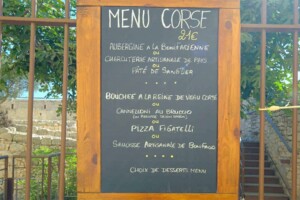 MENU CORSE
21€
AUBERGINE A LA BONIFACIENNE
OU
CHARCUTERIE ARTISANALE DE PAYS
OU
PÂTÉ DE SANGLIER
BOUCHEE A LA REINE DE VEAU CORSE
OU
CANNELLONI AU BROCCIU
OU
PIZZA FIGATELLI
OU
SAUCISSE ARTISANALE DE
CHOIX DE DESSERTS MENU